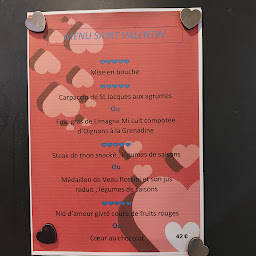 MENU SAINT VALENTIN
Mise en bouche
Carpaccio de St Jacques aux agrumes
Ou
Foie gras de Limagne Mi cuit compotée
d'Oignons à la Grenadine
Steak de thon snacké , légumes de saisons
Ou
Médaillon de Veau Rossini et son jus
réduit , légumes de saisons
Nid d'amour givré coulis de fruits rouges
Ou
Cœur au chocolat
42 €